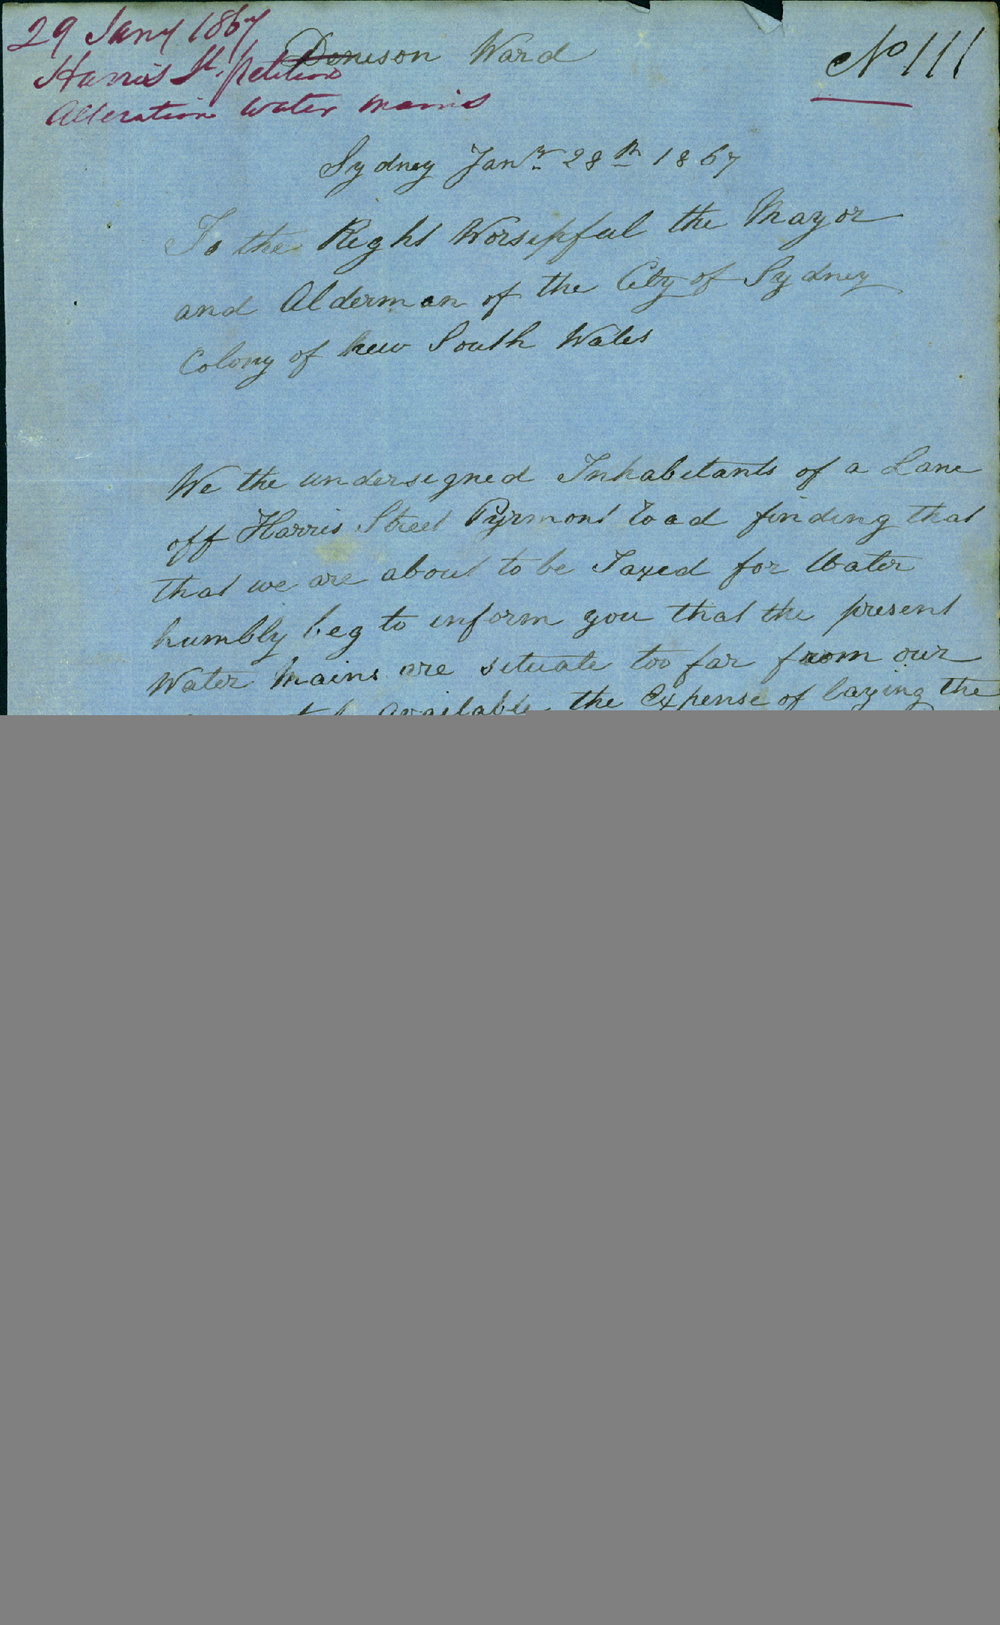 29 Jany 1867
Harris St. petition
Alteration water mains
Denison Ward
No 111
Sydney Jany 28th 1867
To the Right Worsipful the Mayor
and Alderman of the City of Sydney
Colony of New South Wales
We the undersigned Inhabitants of a Lane
off Harris Street Pyrmont Road finding that
that we are about to be Taxed for Water
humbly beg to inform you that the present
Water Mains are situate too far from our
available the Expense of laying the